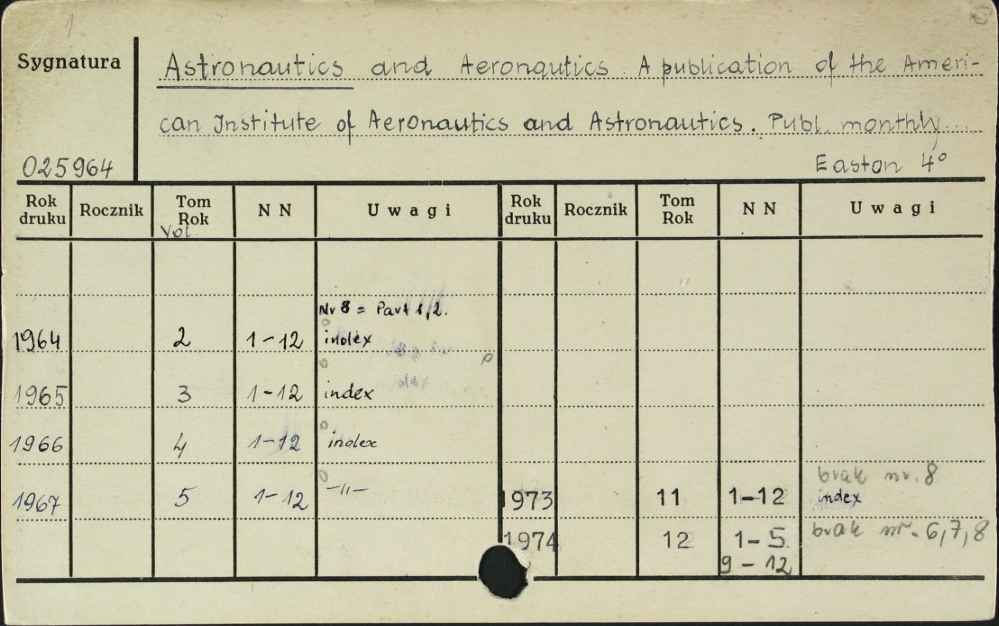 1
Sygnatura
Astronautics and Aeronautics. A publication of the Ameri-
can Institute of Aeronautics and Astronautics. Publ. monthly.
025964
Easton 4°
Rok druku Rocznik Tom Rok NN Uwagi Rok druku Rocznik Tom Rok NN Uwagi
Vol
Nr 8 = Part 1, 2.
1964 2 1-12 index
1965 3 1-12 index
1966 4 1-12 index
brak nr. 8
1967 5 1-12 -"- 1973 11 1-12 index
1974 12 1-5. brak nr. 6,7,8
9-12